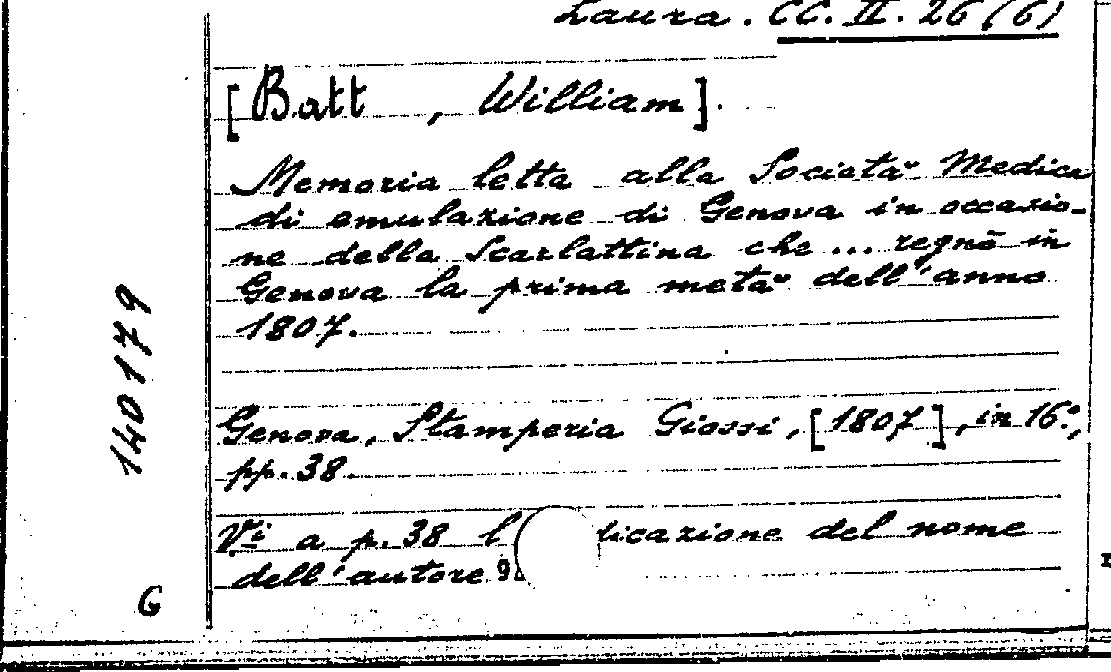 Laura. CC. II. 26 (6)
[Batt , William].
Memoria letta alla Società Medica
di emulazione di Genova in occasio-
ne della Scarlattina che ... regnò in
Genova la prima metà dell'anno
1807.
Genova, Stamperia Giossi, [1807], in 16°,
pp. 38
Vi a p. 38 l dicazione del nome
dell'autore 9
140179
G